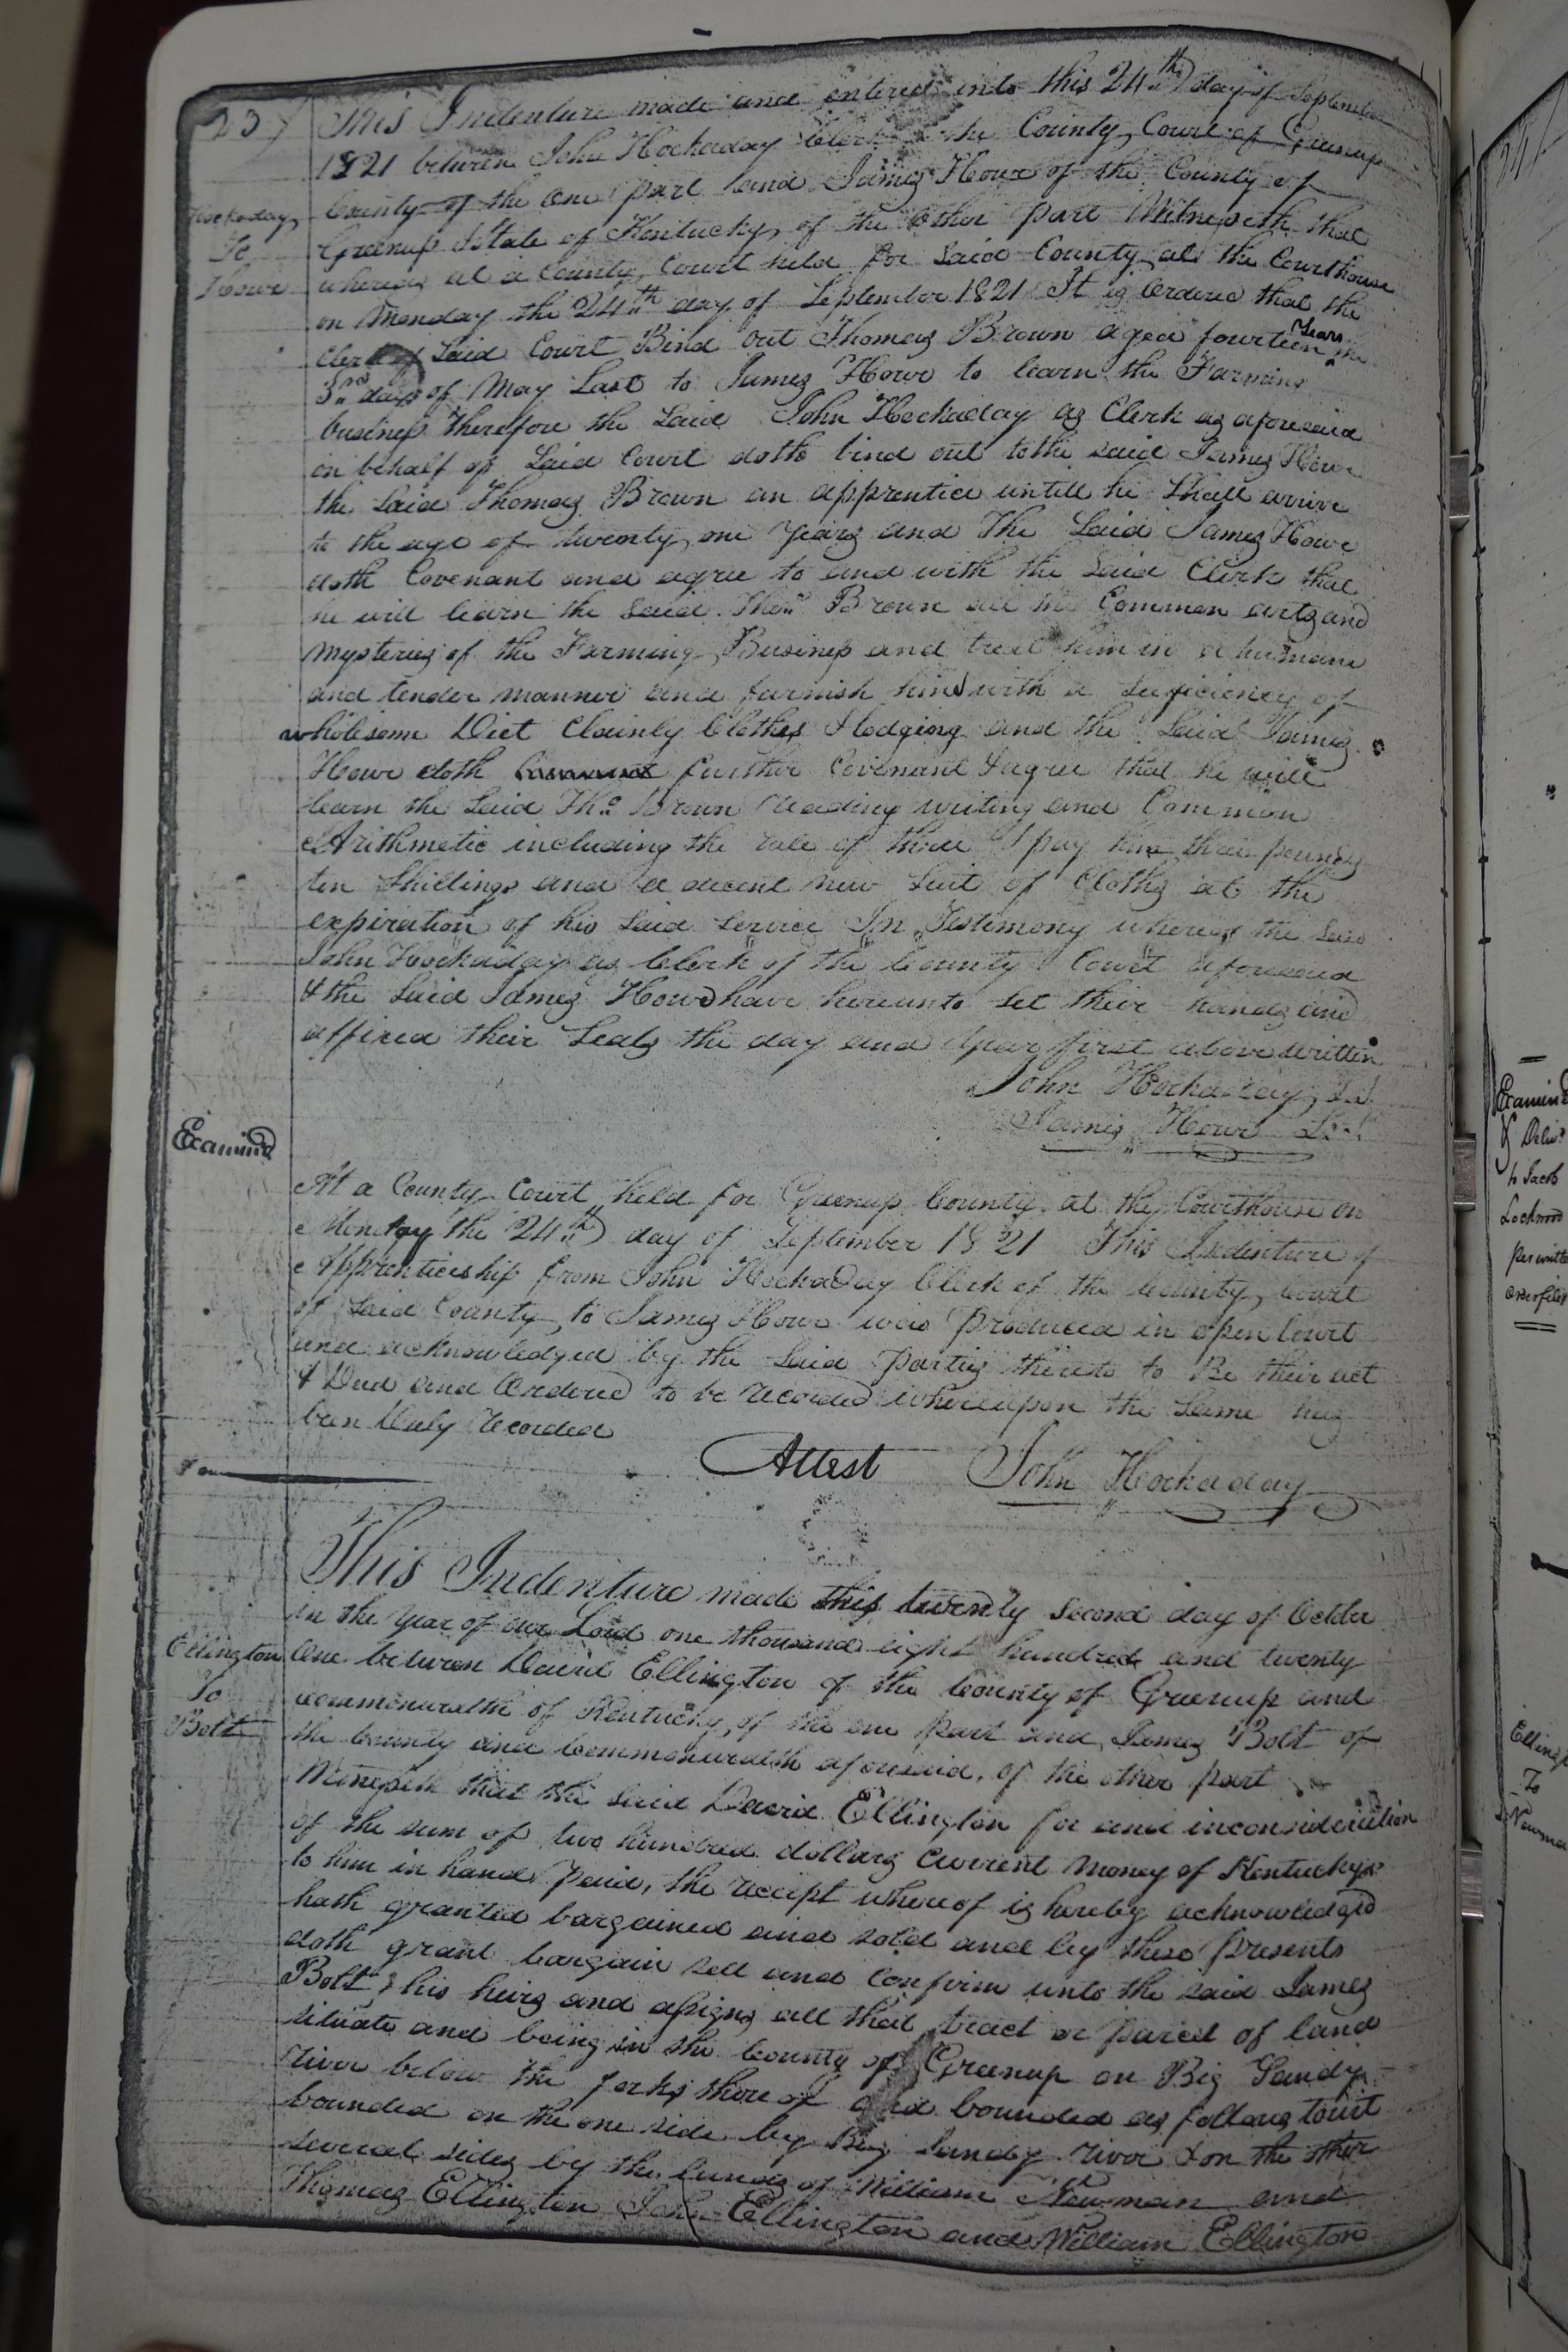 This Indenture made and entered into this 24th day of September
1821 between John Hockaday Clerk the County Court of Greenup
County of the One part and James Howe of the County of
Hockaday
To
Howe
Greenup & State of Kentucky, of the Other part Witnesseth that
whereas at a County Court held for Said County at the Courthouse
on Monday the 24th day of September 1821 It is Ordered that the
Clerk of Said Court Bind out Thomas Brown aged fourteen Years the
3rd day of May Last to James Howe to learn the Farming
business therefore the Said John Hockaday as Clerk as aforesaid
on behalf of Said Court doth bind out to the said James Howe
the Said Thomas Brown an apprentice untill he Shall arrive
to the age of twenty one years and The Said James Howe
doth Covenant and agree to and with the Said Clerk that
he will learn the Said Thos. Brown all the Common arts and
Mysteries of the Farming Business and treat him in a humane
and tender manner and furnish him with a Sufficiency of
wholesome Diet Cleanly Clothes & lodging and the Said James
Howe doth further Covenant & agree that he will
learn the Said Tho. Brown reading writing and Common
Arithmetic including the rule of three & pay him three pounds
ten Shillings and a decent new Suit of Cloths at the
expiration of his Said Service In Testimony whereof the Said
John Hockaday as Clerk of the County Court aforesaid
& the Said James Howe have hereunto Set their hands and
affixed their Seals the day and Year first above written
John Hockaday
James Howe
Examined
At a County Court held for Greenup County at the Courthouse on
Monday the 24th day of September 1821 This Indenture of
Apprenticeship from John Hockaday Clerk of the County Court
of Said County to James Howe was produced in open Court
and acknowledged by the Said parties thereto to Be their act
& Deed and Ordered to be recorded whereupon the Same has
been Duly recorded
Attest John Hockaday
This Indenture made this twenty Second day of October
in the Year of our Lord one thousand eight hundred and twenty
Ellington
To
Bolt
One between David Ellington of the County of Greenup and
commonwealth of Kentucky, of the one part and James Bolt of
the County and Commonwealth aforesaid, of the other part
Witnesseth that the Said David Ellington for and in consideration
of the sum of two hundred dollars Current Money of Kentucky
to him in hand paid, the receipt whereof is hereby acknowledged
hath granted bargained and sold and by these presents
doth grant bargain sell and confirm unto the said James
Bolt, his heirs and assigns all that tract or parcel of land
situate and being in the County of Greenup on Big Sandy
river below the forks thereof and bounded as follows towit
bounded on the one side by Big Sandy river & on the other
several sides by the lands of William Newman and
Thomas Ellington John Ellington and William Ellington
Examined
& Deliv'd
to Jacob
Lockwood
per
To